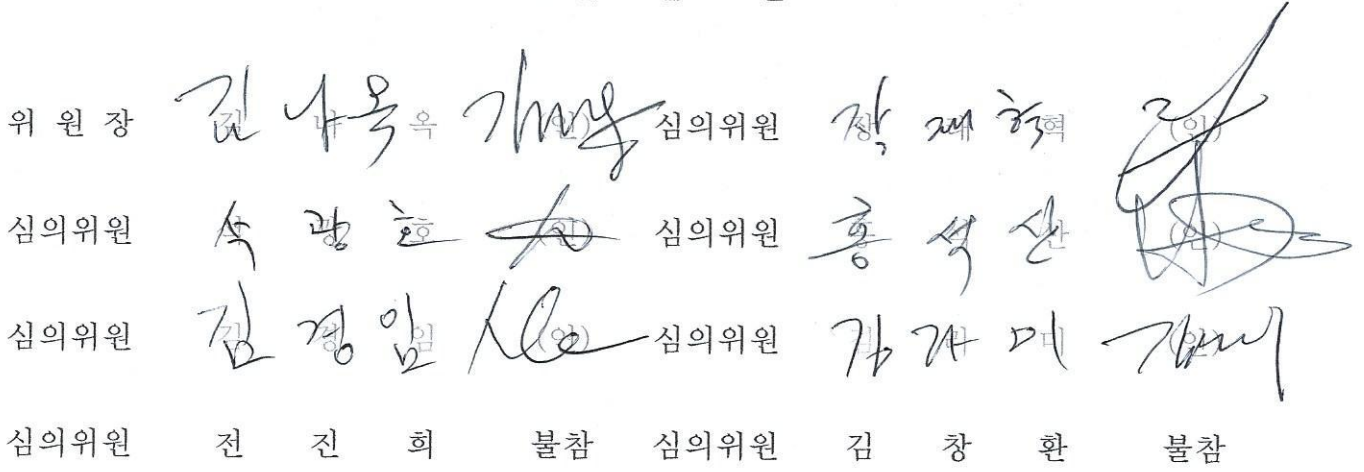 위 원 장 김 나 옥 (인) 심의위원 장 재 혁 (인)
심의위원 석 광 호 (인) 심의위원 홍 석 산 (인)
심의위원 김 경 임 (인) 심의위원 김 가 미 (인)
심의위원 전 진 희 불참 심의위원 김 창 환 불참